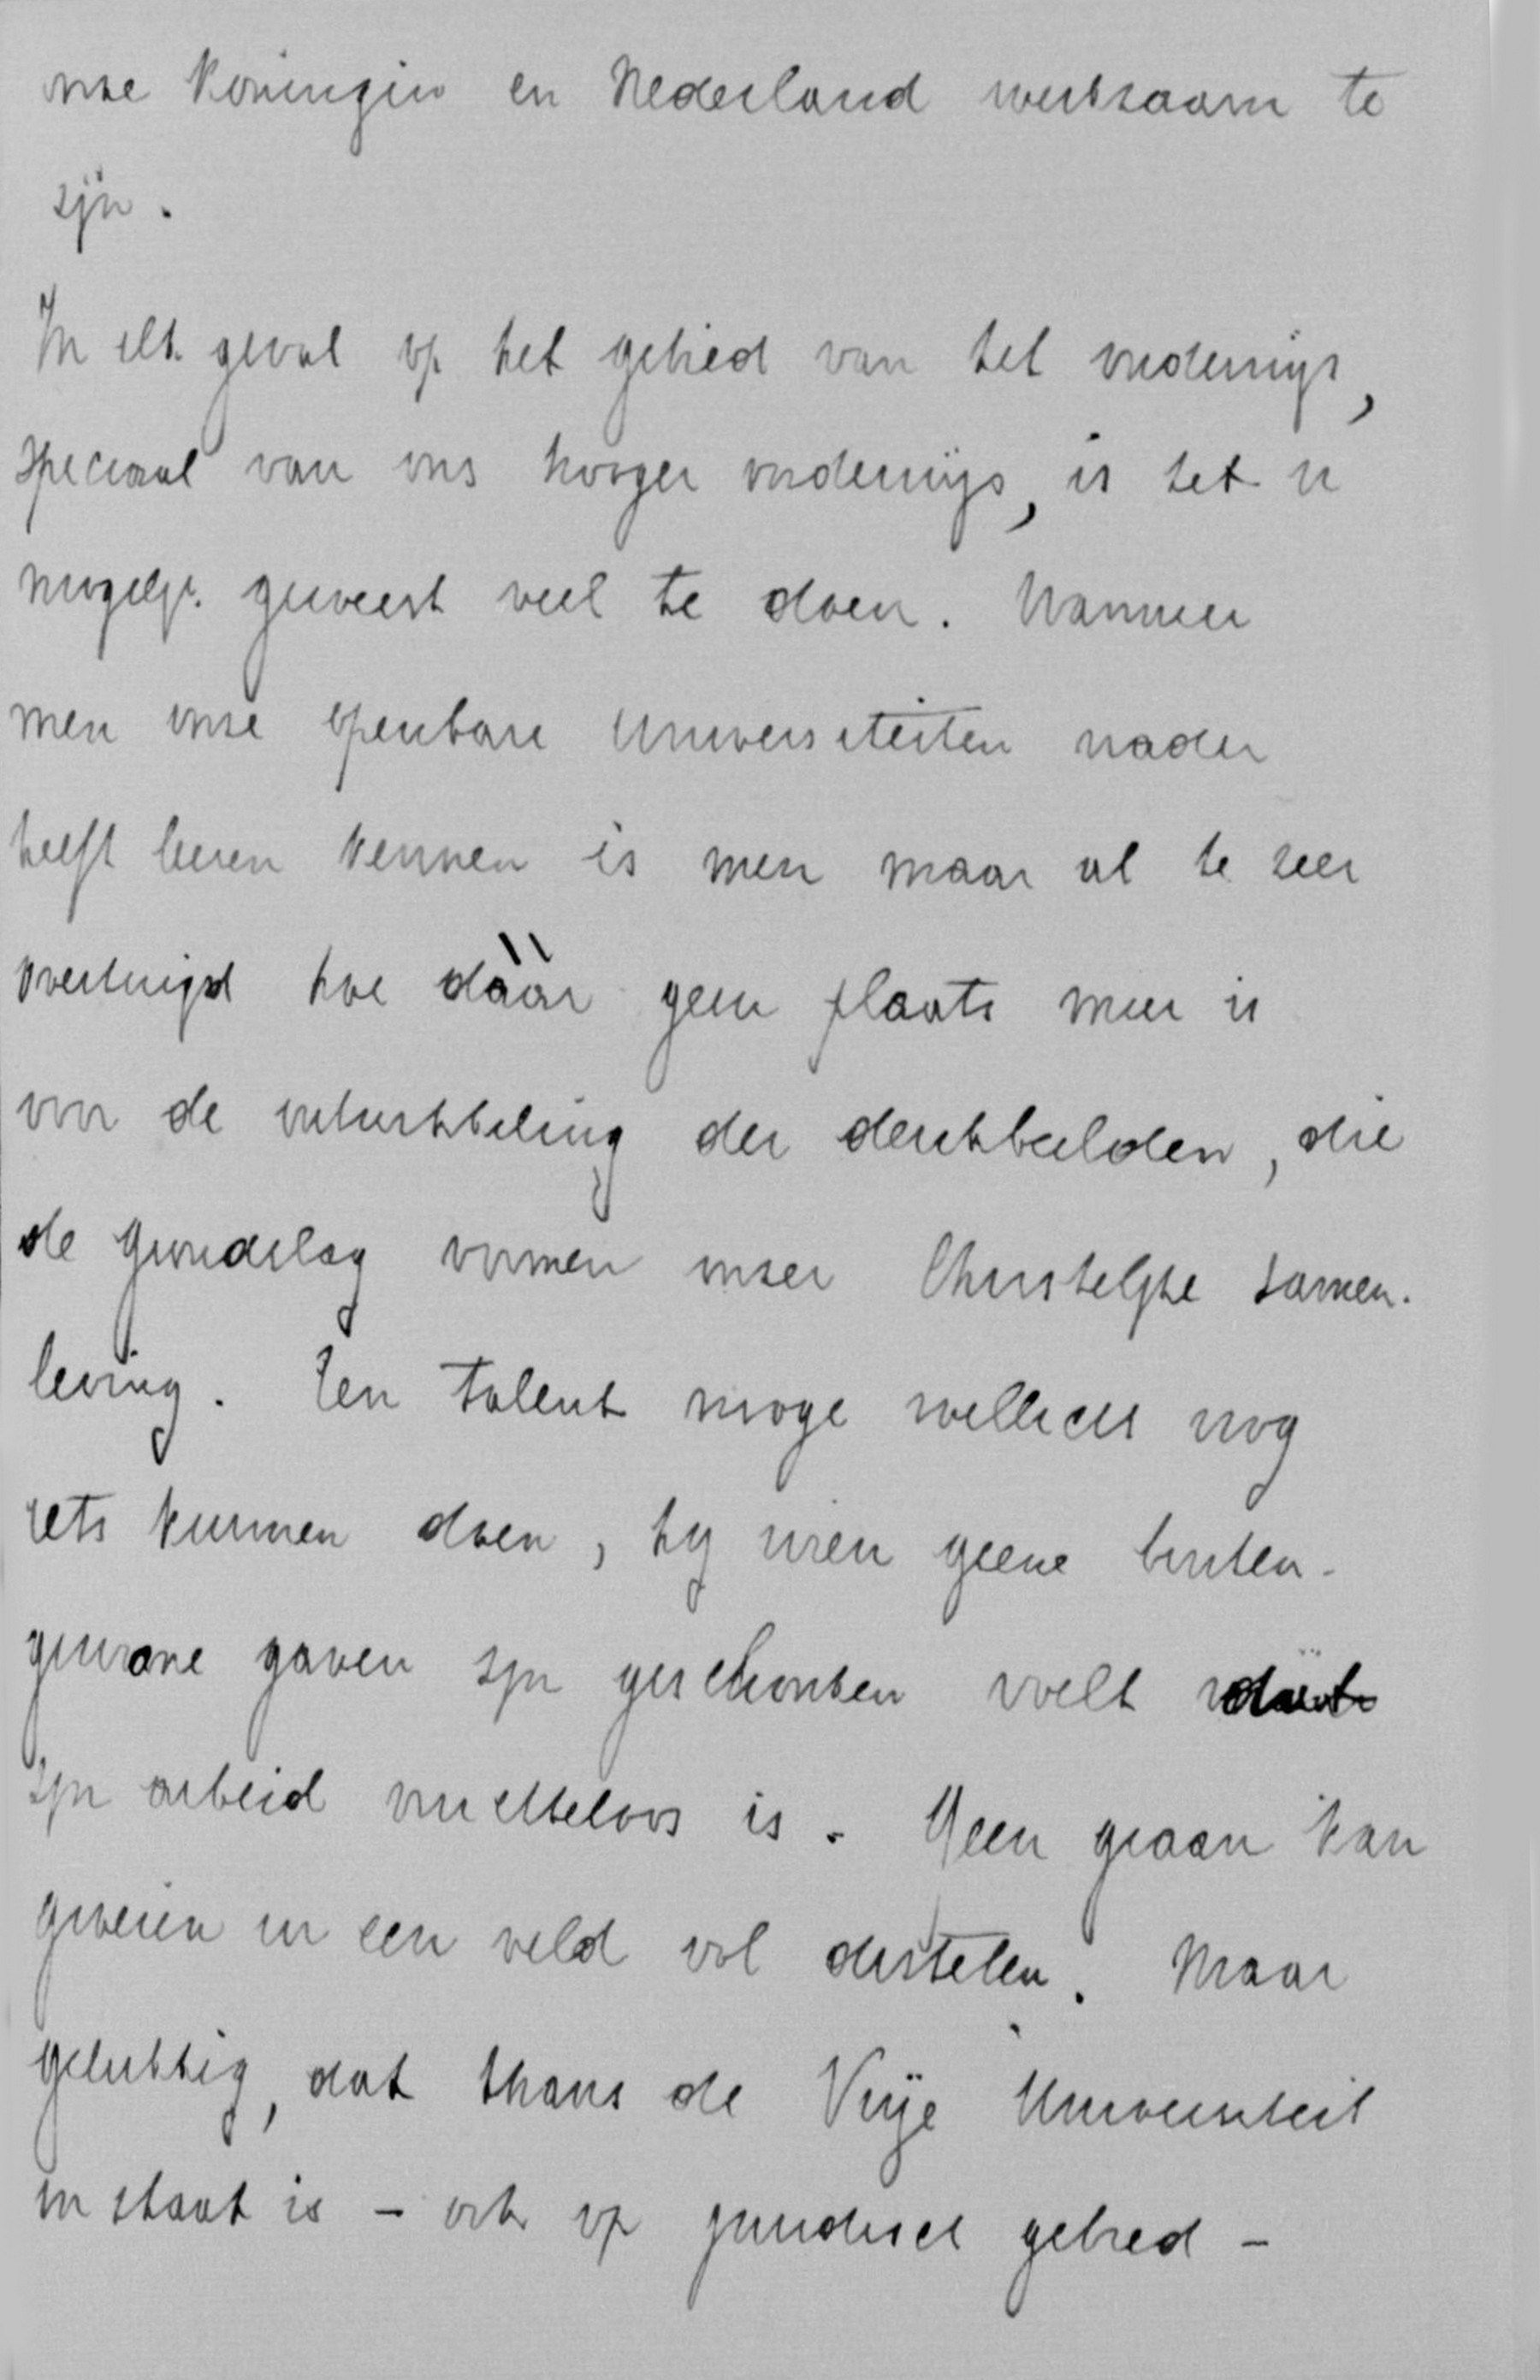 onze Koningin en Nederland werkzaam te
zijn.
In elk geval op het gebied van het onderwijs,
speciaal van ons hooger onderwijs, is het u
mogelijk geweest veel te doen. Wanneer
men onze openbare Universiteiten nader
heeft leeren kennen is men maar al te zeer
overtuigd hoe dààr geen plaats meer is
voor de ontwikkeling der denkbeelden, die
de grondslag vormen onzer Christelijke samen-
leving. Een talent moge wellicht nog
iets kunnen doen, hij wien geene buiten-
gewone gaven zijn geschonken voelt dat
zijn arbeid vruchteloos is. Geen graan kan
groeien in een veld vol distelen. Maar
gelukkig, dat thans de Vrije Universiteit
in staat is - ook op juridisch gebied -